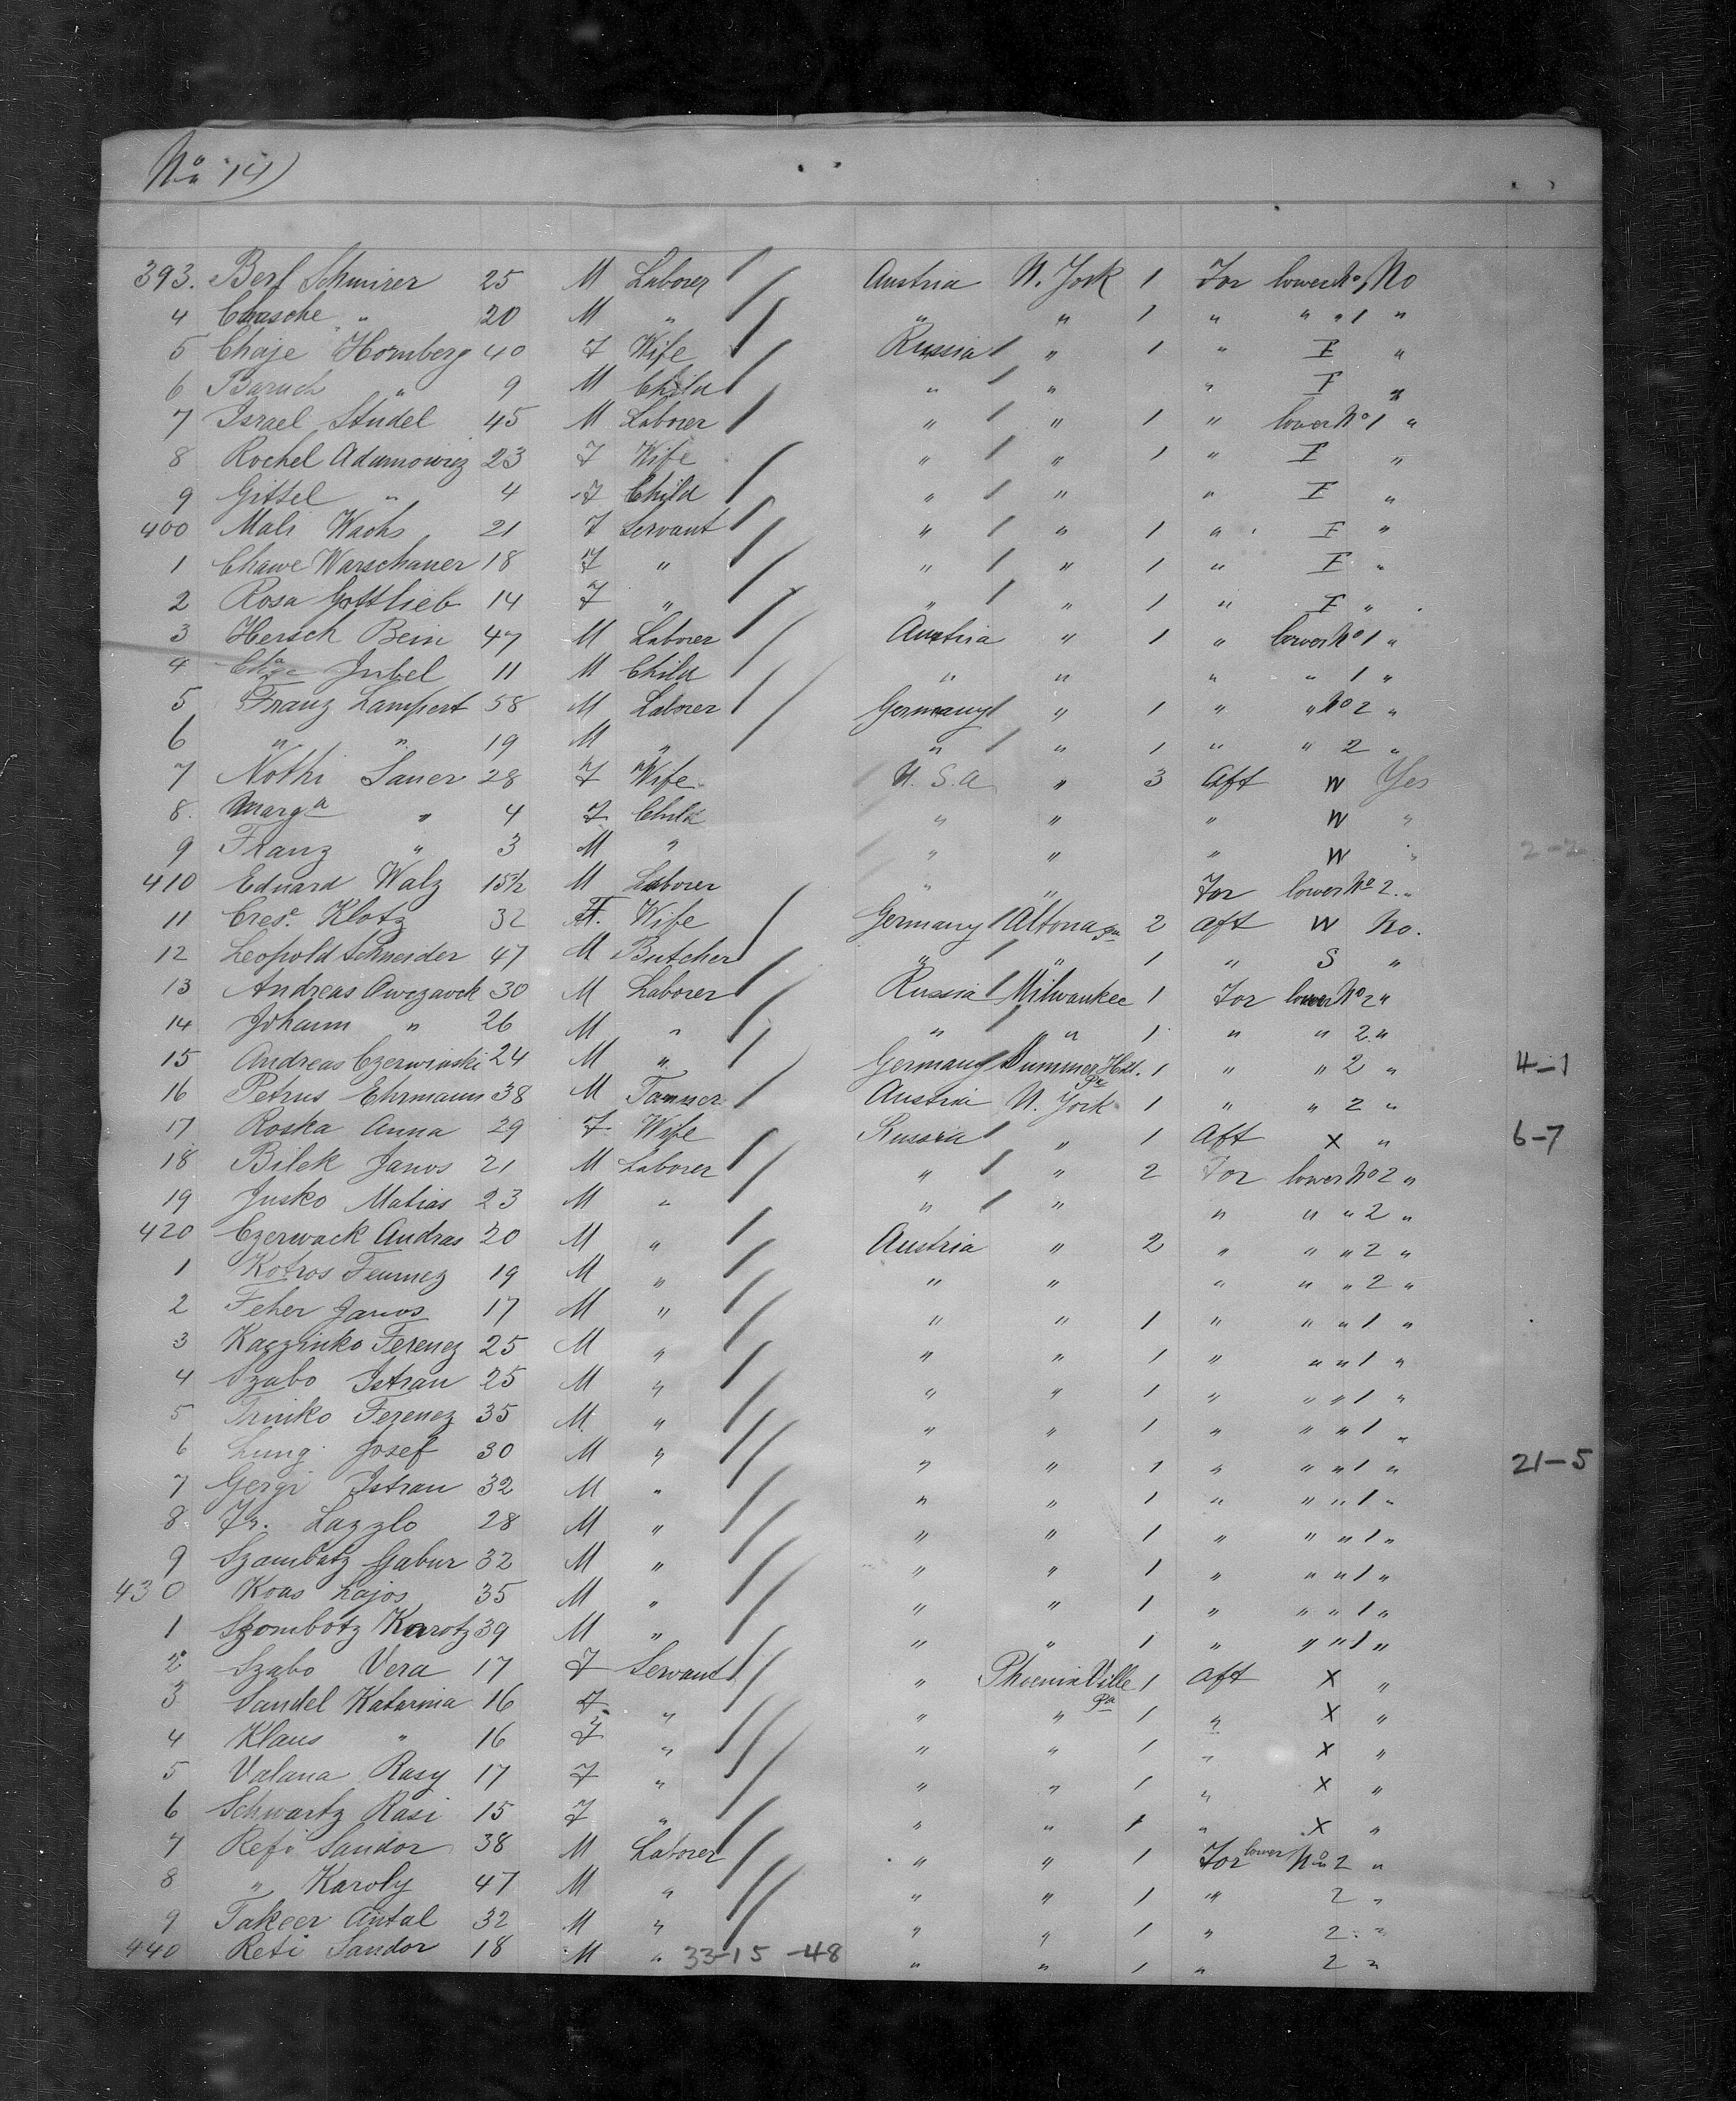 No 14)
393. Berl Schmirer 25 M Laborer Austria N. York 1 For lower No 1 No
4 Chasche " 20 M " " " 1 " " " 1 "
5 Chaje Hornberg 40 F Wife Russia " 1 " I "
6 Baruch " 9 M Child " " " I "
7 Israel Studel 45 M Laborer " " 1 " lower No 1 "
8 Rochel Adamowicz 23 F Wife " " 1 " I "
9 Gittel " 4 F Child " " " I "
400 Mali Wachs 21 F Servant " " 1 " I "
1 Chawe Warschauer 18 F " " " 1 " I "
2 Rosa Gottlieb 14 F " " " 1 " I "
3 Hersch Bein 47 M Laborer Austria " 1 " lower No 1 "
4 Jubel 11 M Child " " " " 1 "
5 Franz Lampert 58 M Laborer Germany " 1 " " No 2 "
6 " " 19 M " " " 1 " " 2 "
7 Nothi Sauer 28 F Wife U.S.a " 3 Aft W Yes
8. Marga " 4 F Child " " " W "
9 Franz " 3 M " " " " W " 2-2
410 Eduard Walz 15 1/2 M Laborer " " For lower No 2 "
11 Cresc. Klotz 32 F. Wife Germany Altona Pa 2 aft W No.
12 Leopold Schneider 47 M Butcher " " 1 " S "
13 Andreas Owczavck 30 M Laborer Russia Milwaukee 1 For lower No 2 "
14 Johann " 26 M " " " 1 " " 2 "
15 Andreas Czerwinski 24 M " Germany Summer Hill. Pa 1 " " 2 " 4-1
16 Petrus Ehrmann 38 M Tanner Austria N. York 1 " " 2 "
17 Roska Anna 29 F Wife Russia " 1 Aft X " 6-7
18 Bilek Janos 21 M Laborer " " 2 For lower No 2 "
19 Jusko Matias 23 M " " " " " " 2 "
420 Czerwack Andras 20 M " Austria " 2 " " " 2 "
1 Kotros 19 M " " " " " " 2 "
2 Feher Janos 17 M " " " 1 " " " 1 "
3 Kaczinko Ferencz 25 M " " " 1 " " " 1 "
4 Szabo Istvan 25 M " " " 1 " " " 1 "
5 Trinko Ferencz 35 M " " " 1 " " " 1 "
6 Lung Josef 30 M " " " 1 " " " 1 " 21-5
7 Gergi Istvan 32 M " " " 1 " " " 1 "
8 Fr. Lazzlo 28 M " " " 1 " " " 1 "
9 Szambatz Gabur 32 M " " " 1 " " " 1 "
430 Koas Lajos 35 M " " " 1 " " " 1 "
1 Szombotz Karotz 39 M " " " 1 " " " 1 "
2 Szabo Vera 17 F Servant " PhoenixVille Pa 1 aft X "
3 Sandel Katarina 16 F " " " 1 " X "
4 Klaus " 16 F " " " 1 " X "
5 Valana Rasy 17 F " " " 1 " X "
6 Schwartz Rasi 15 F " " " 1 " X "
7 Refi Sandor 38 M Laborer " " 1 For lower No 2 "
8 " Karoly 47 M " " " 1 " 2 "
9 Takeer Antal 32 M " " " 1 " 2 "
440 Reti Sandor 18 M " 33-15-48 " " 1 " 2 "